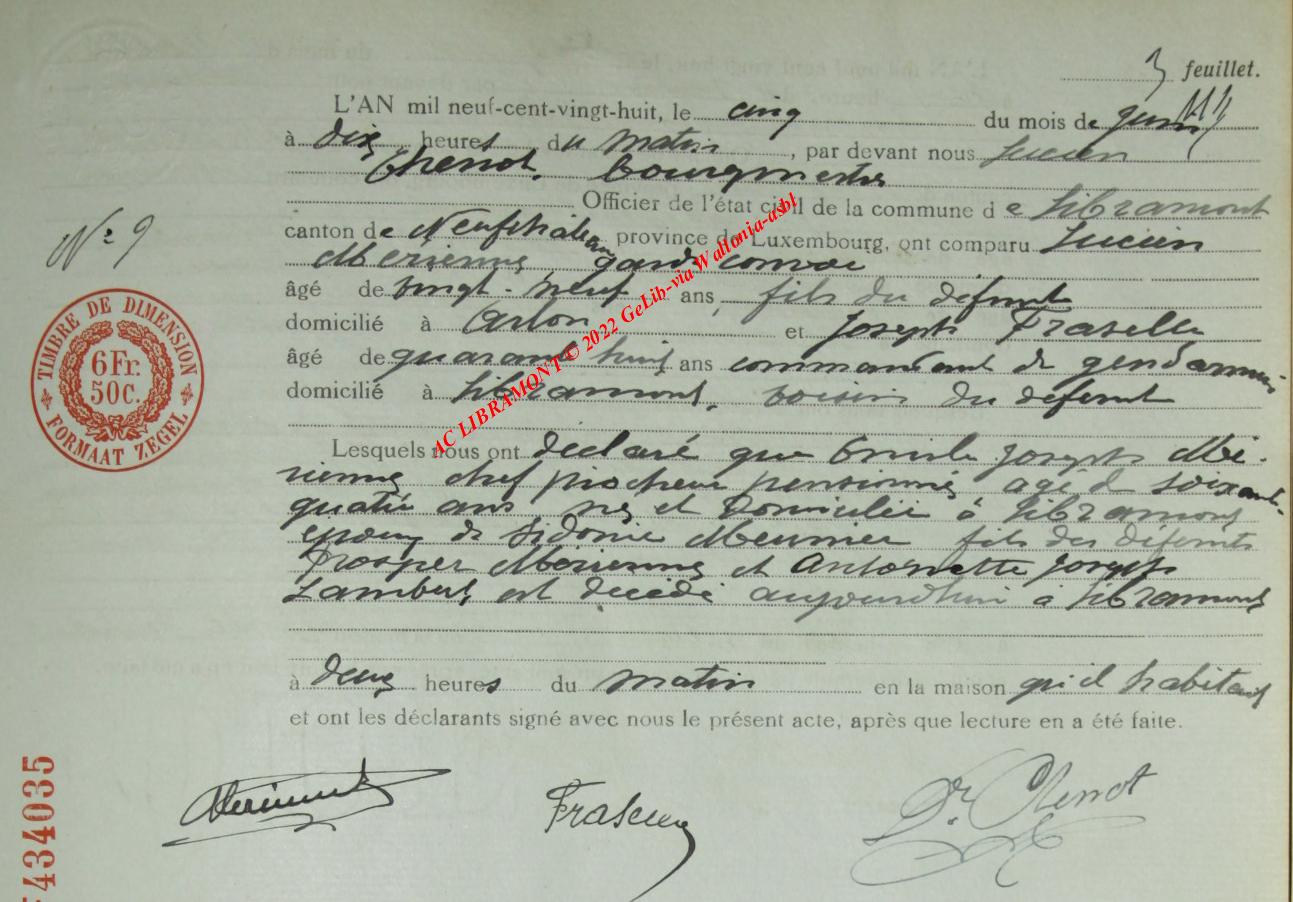 3 feuillet.
L'AN mil neuf-cent-vingt-huit, le cinq du mois de
à dix heures du matin, par devant nous Lucien
Chenot, bourgmestre
Officier de l'état civil de la commune de Libramont
canton de Neufchâteau province de Luxembourg, ont comparu Lucien
garde convoi
âgé de vingt-neuf ans, fils du défunt
domicilié à Arlon et Joseph Fraselle
âgé de quarante huit ans commandant de gendarmerie
domicilié à Libramont, voisin du défunt
Lesquels nous ont déclaré que Emile Joseph
chef piocheur pensionné âgé de soixante-
quatre ans né et domicilié à Libramont
époux de Sidonie Meunier fils des défunts
Prosper et Antoinette Joseph
Lambert, est décédé aujourd'hui à Libramont
à deux heures du matin en la maison qu'il habitait
et ont les déclarants signé avec nous le présent acte, après que lecture en a été faite.
N° 9
TIMBRE DE DIMENSION
6Fr.
50C.
FORMAAT ZEGEL
434035
AC LIBRAMONT © 2022 GeLib-via Wallonia-asbl
Dr. Chenot